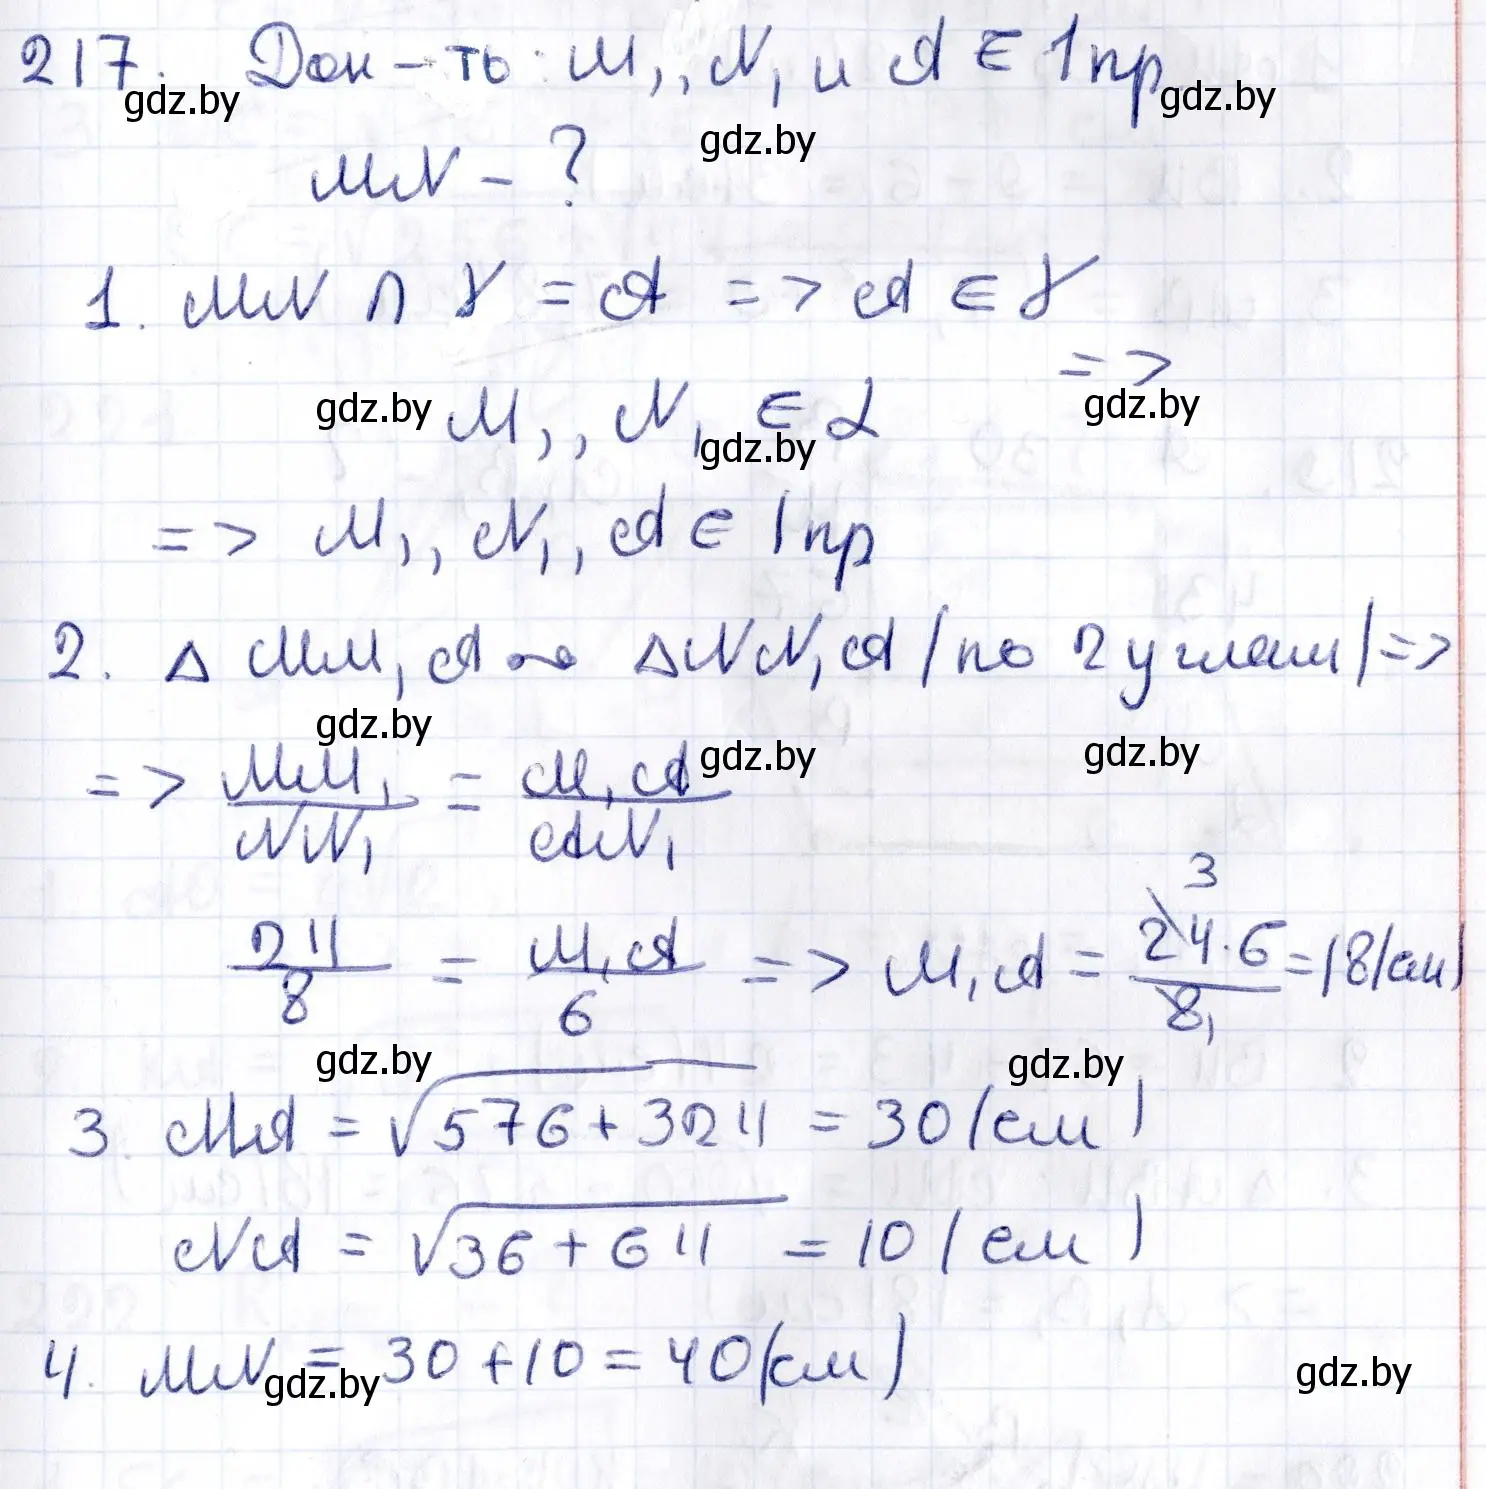 217. Док-ть: M₁, N₁ и A ∈ 1 пр
gdz.by gdz.by
MN - ? gdz.by
1. MN ∩ γ = A => A ∈ γ
=>
gdz.by M₁, N₁ ∈ α gdz.by
gdz.by
=> M₁, N₁, A ∈ 1 пр
2. △ MM₁A ∾ △ NN₁A (по 2 углам) =>
gdz.by gdz.by gdz.by
=> MM₁/NN₁ = M₁A/AN₁
24/8 = M₁A/6 => M₁A = 24³·6/8₁ = 18 (см)
gdz.by gdz.by
3. MA = √576+324 = 30 (см)
NA = √36+64 = 10 (см)
4. MN = 30+10 = 40 (см)
gdz.by gdz.by